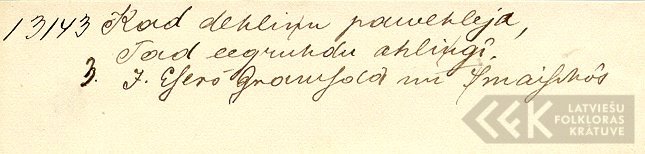 13143 Kad dehliņu pawehleja,
Tad eegruhdu ahliņgî.
3. J. Esero Gramsdâ un Smaischôs
LATVIEŠU
FOLKLORAS
KRĀTUVE